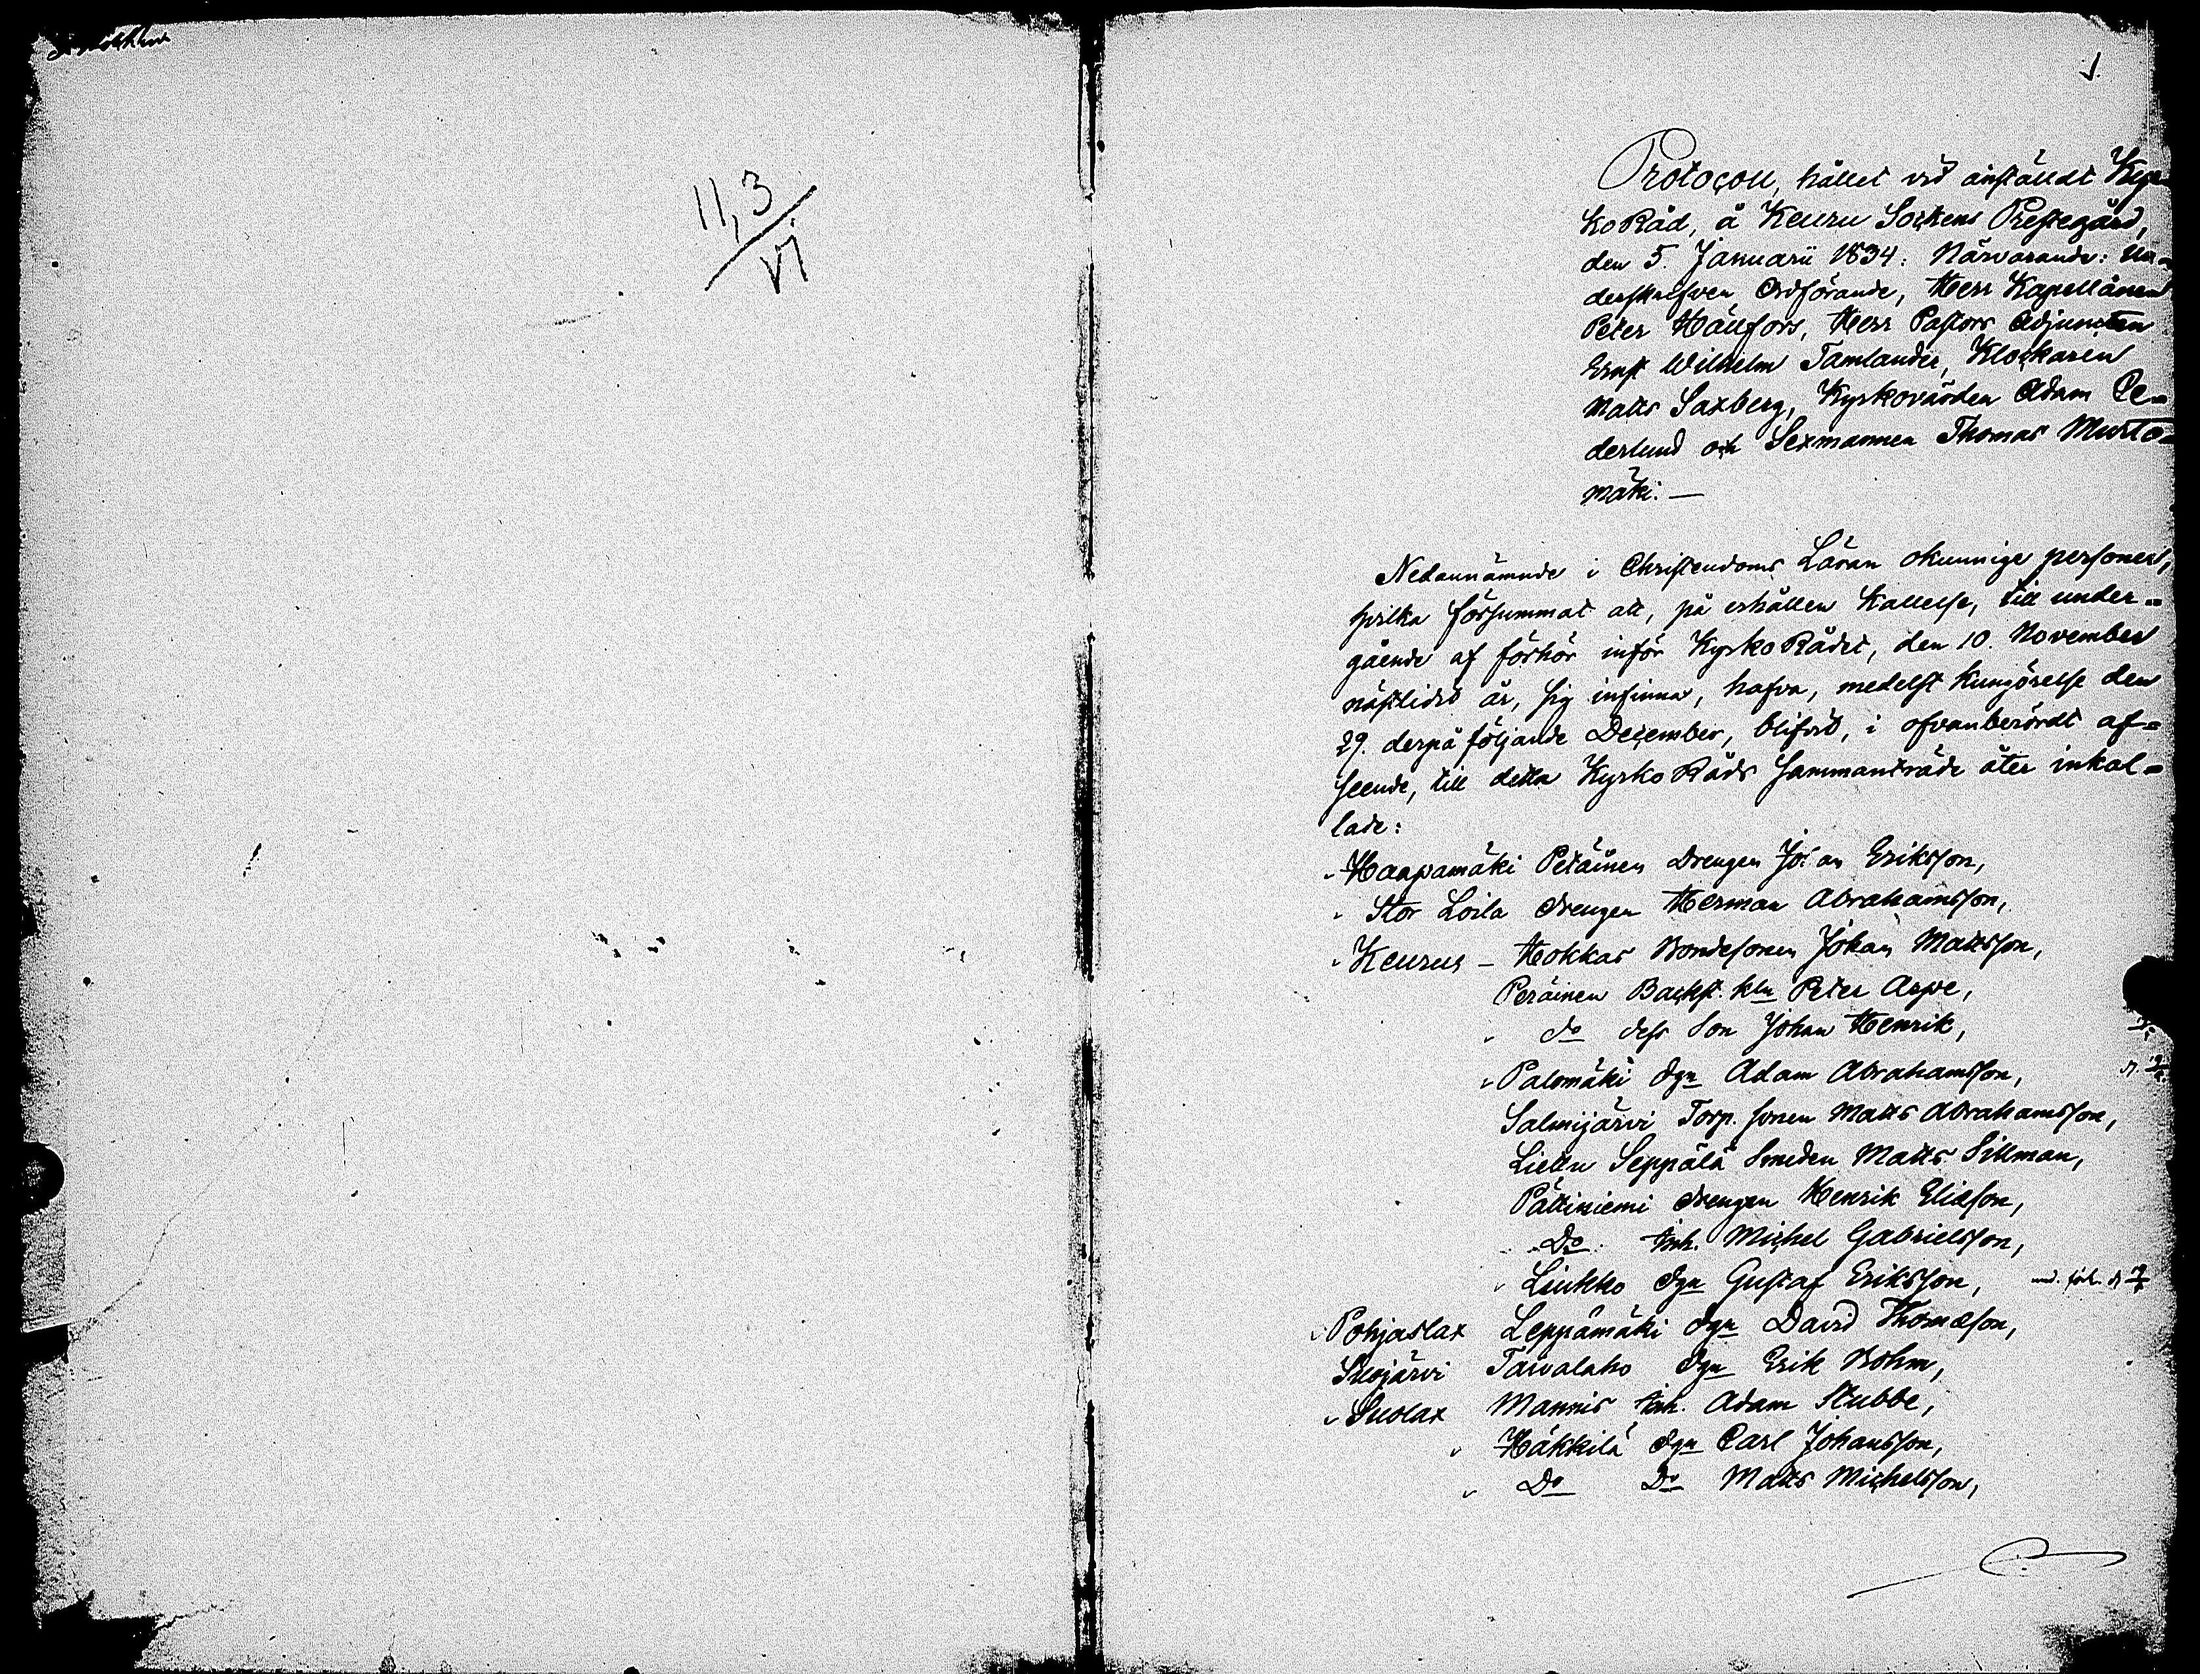 11,3
VI
1.
Protocoll, hållet vid anstäldt Kyr-
koRåd, å Keuru Sockens Prestegård,
den 5. Januarii 1834: Närvarande: Un-
derskrefven Ordförande, Herr Kapellånen
Peter Hällfors, Herr Pastors Adjuncten
Ernst Wilhelm Tamlander, Klockaren
Matts Saxberg, Kyrkovärden Adam Ce-
derlund och Sexmannen Thomas Murto-
mäki. —
Nedannämnde i Christendoms Läran okunnige personer,
hvilka försummat att, på erhållen Kallelse, till under-
gående af förhör inför KyrkoRådet, den 10. November
nästlidit år, sig infinna, hafva, medelst Kungörelse den
29. derpå följande December, blifvit, i ofvanberördt af-
seende, till detta KyrkoRåds sammanträde åter inkal-
lade:
Haapamäki Petäinen Drengen Johan Eriksson,
Stor Loila drengen Herman Abrahamsson,
Keurus – Hokkas Bondesonen Johan Mattsson,
Peräinen Backst. kln Peter Arpe,
do dess Son Johan Henrik,
Palomäki dgn Adam Abrahamsson,
Salmijärvi Torp. sonen Matts Abrahamsson,
Liettu Seppälä Smeden Matts Sillman,
Pättiniemi drengen Henrik Eliasson,
Do Inh. Michel Gabrielsson,
Liukko dgn Gustaf Eriksson,
Pohjaslax Leppämäki dgn David Thomasson,
Suojärvi Tarvalaho dgn Erik Bohm,
Suolax Mannis Inh. Adam Stubbe,
Häkkilä dgn Carl Johansson,
Do Do Matts Michelsson,